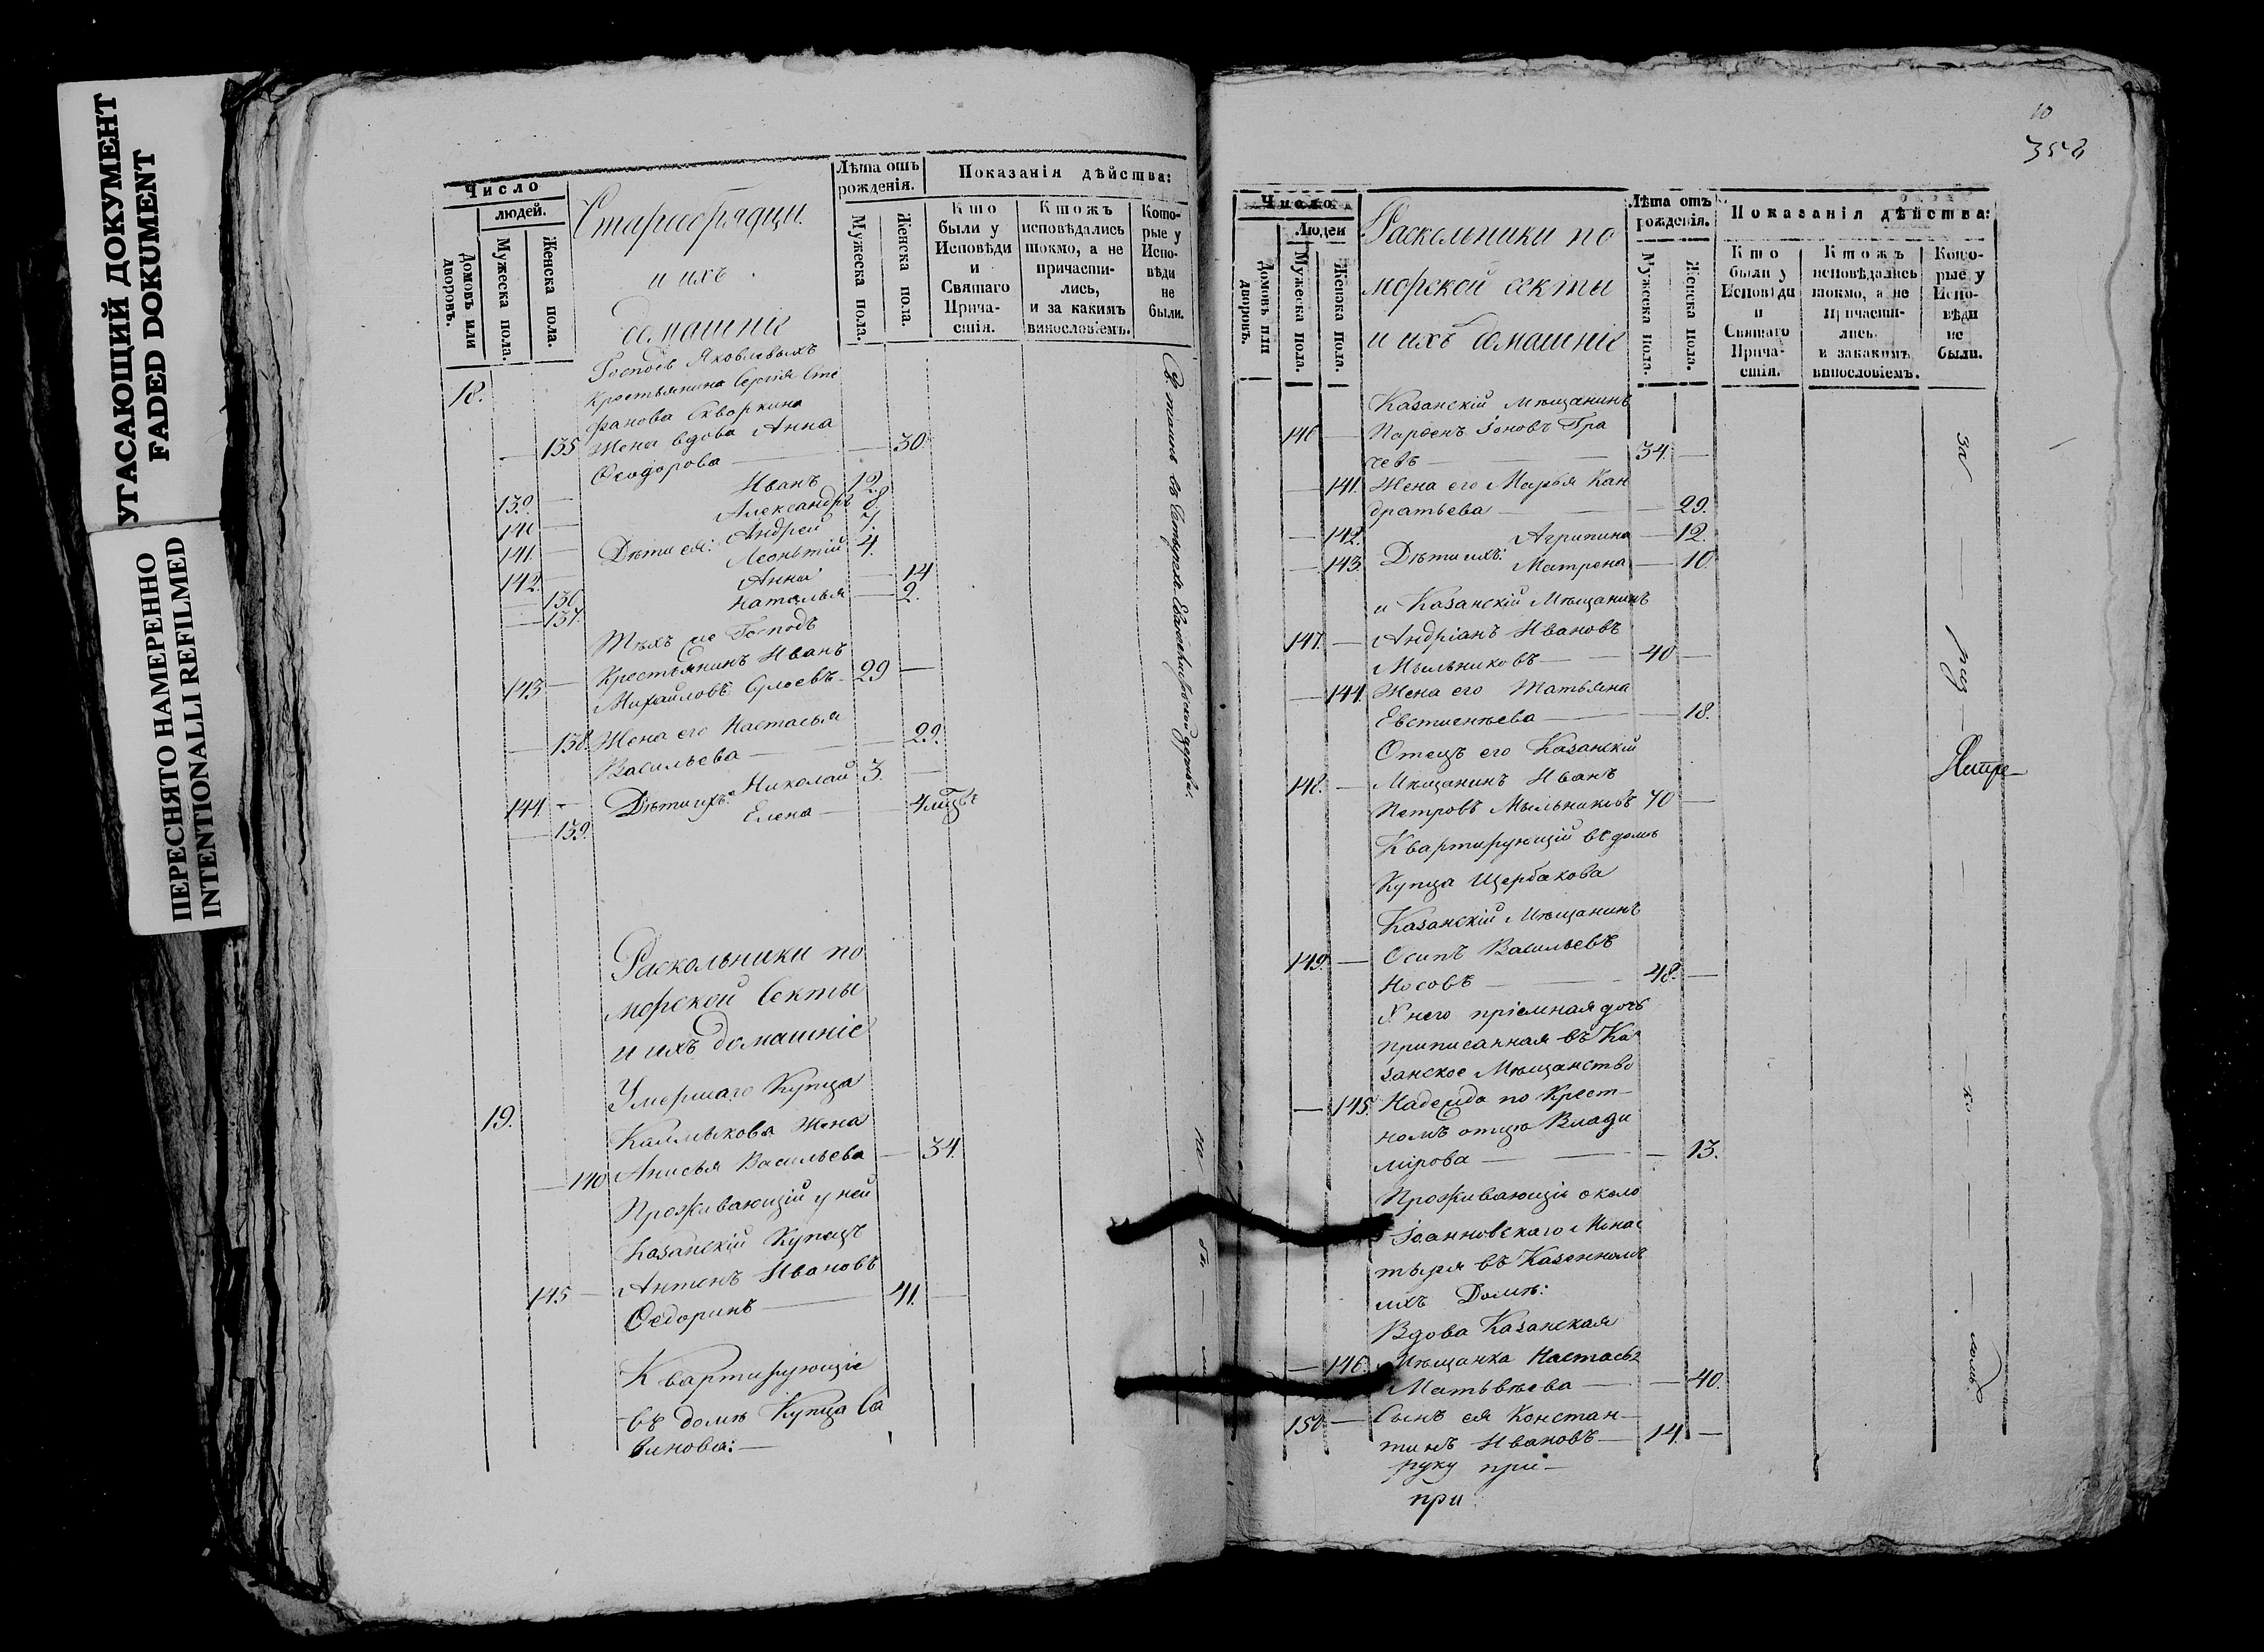 УГАСАЮЩИЙ ДОКУМЕНТ
FADED DOKUMENT
ПЕРЕСНЯТО НАМЕРЕННО
INTENTIONALLI REFILMED
Число
людей.
Домовъ или дворовъ.
Мужеска пола.
Женска пола.
Старообрядцы
и ихъ
домашніе
Лѣта отъ рожденія.
Мужеска пола.
Женска пола.
Показанія дѣйства:
Кто были у Исповѣди и Святаго Прича-стія.
Ктожъ исповѣдались токмо, а не причасти-лись, и за какимъ винословіемъ.
Кото-рые у Испо-вѣди не были.
18. Господъ Яковлевыхъ
Крестьянина Сергія Сте
фанова Скворкина
135 Жена вдова Анна
Ѳеодорова — — 30.
139. — Иванъ 12.
140 — Александръ 8.
141 — Дѣти ея: Андрей 7.
142. — Леонтій 4.
— 136 Анна — 14
— 137. Наталья — 2.
Тѣхъ же Господъ
143 — Крестьянинъ Иванъ
Михайловъ 29 —
— 138. Жена его Настасья
Васильева — — 29.
144 — Дѣти ихъ: Николай 3. —
— 139. Елена — 4
Раскольники по
морской Секты
и ихъ домашніе
19. Умершаго Купца
Калмыкова Жена
— 140 Анисья Васильева — 34.
Проживающій у ней
Казанскій Купецъ
145 — Антонъ Ивановъ
Ѳедоринъ — 41. —
Квартирующіе
въ домѣ Купца Са
винова: —
10
358
Число
Людей
Домовъ или дворовъ.
Мужеска пола.
Женска пола.
Раскольники по
морской секты
и ихъ домашніе
Лѣта отъ рожденія.
Мужеска пола.
Женска пола.
Показанія дѣйства:
Кто были у Исповѣди и Святаго Прича-стія.
Ктожъ исповѣдались токмо, а не причасти-лись. и закакимъ винословіемъ.
Кото-рые у Испо-вѣди не были.
Казанскій мѣщанинъ
146 — Парѳенъ Іоновъ Гра
чевъ — — 34. —
— 141. Жена его Марья Кан
дратьева — — 29.
— 142. Агрипина — 12.
— 143. Дѣти ихъ: Матрона — 10.
и Казанскій Мѣщанинъ
147. — Андріанъ Ивановъ
Мыльниковъ — 40 —
— 144. Жена его Татьяна
Евстигнѣева — — 18.
Отецъ его Казанскій
148. — Мѣщанинъ Иванъ
Петровъ Мыльниковъ 70 —
Квартирующій въ домѣ
Купца Щербакова
Казанскій Мѣщанинъ
149. — Осипъ Васильевъ
Носовъ — — 48. —
У него пріемная дочь
приписанная въ Ка
занское Мѣщанство
— 145 Надежда по Крест—
номъ отцѣ Влади
мірова — — 13.
Проживающіе около
Іоанновскаго Монас
тыря въ Казенномъ
ихъ Домѣ:
Вдова Казанская
— 146. Мѣщанка Настасья
Матвѣева — — 40.
150 — Сынъ ея Констан—
тинъ Ивановъ — 14. —
руку при—
при